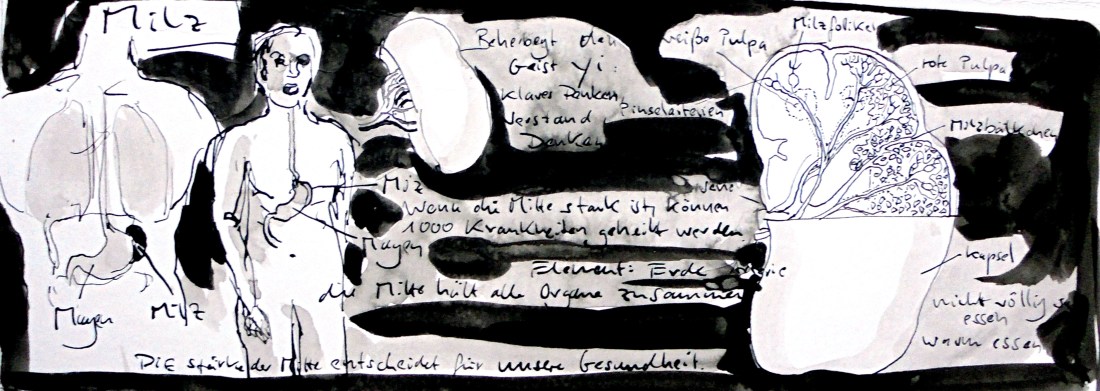 Milz
Magen
Milz
Milz
Magen
Beherbergt den
Geist Yi:
Klares Denken,
Verstand,
Denken
Wenn die Mitte stark ist, können
1000 Krankheiten geheilt werden
Element: Erde
die Mitte hält alle Organe zusammen
DIE stärke der Mitte entscheidet für unsere Gesundheit.
weiße Pulpa
Milzfolikel
rote Pulpa
Pinselarterien
Milzbälkchen
Kapsel
nicht völlig
essen
warm essen